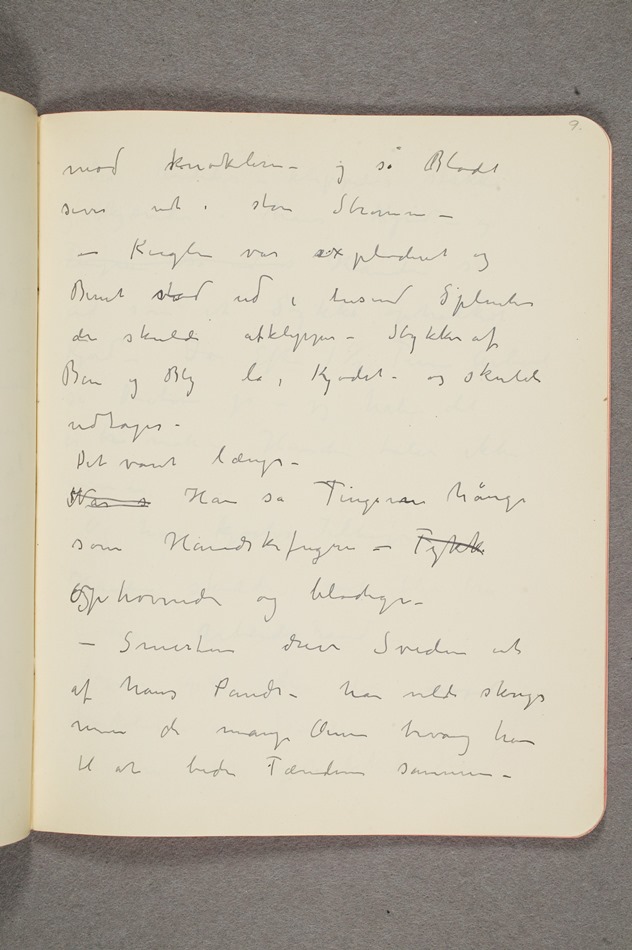 9.
mod knoklerne – og så Blodt
sives ud i store Strømme –
– Kuglen var explodert og
Benet stod ud i tusind Splinter
der skulde afklippes – Stykker af
Ben og Bly lå i Kjødet – og skulde
udtages –
Det varet længe –
Han så Fingrene hänge
som Handskefingre – Tykk
Ophovnede og blodige –
– Smerten drev Sveden ud
af hans Pande – han vilde skrige
men de mange Øine tvang ham
til at bide Tænderne sammen –